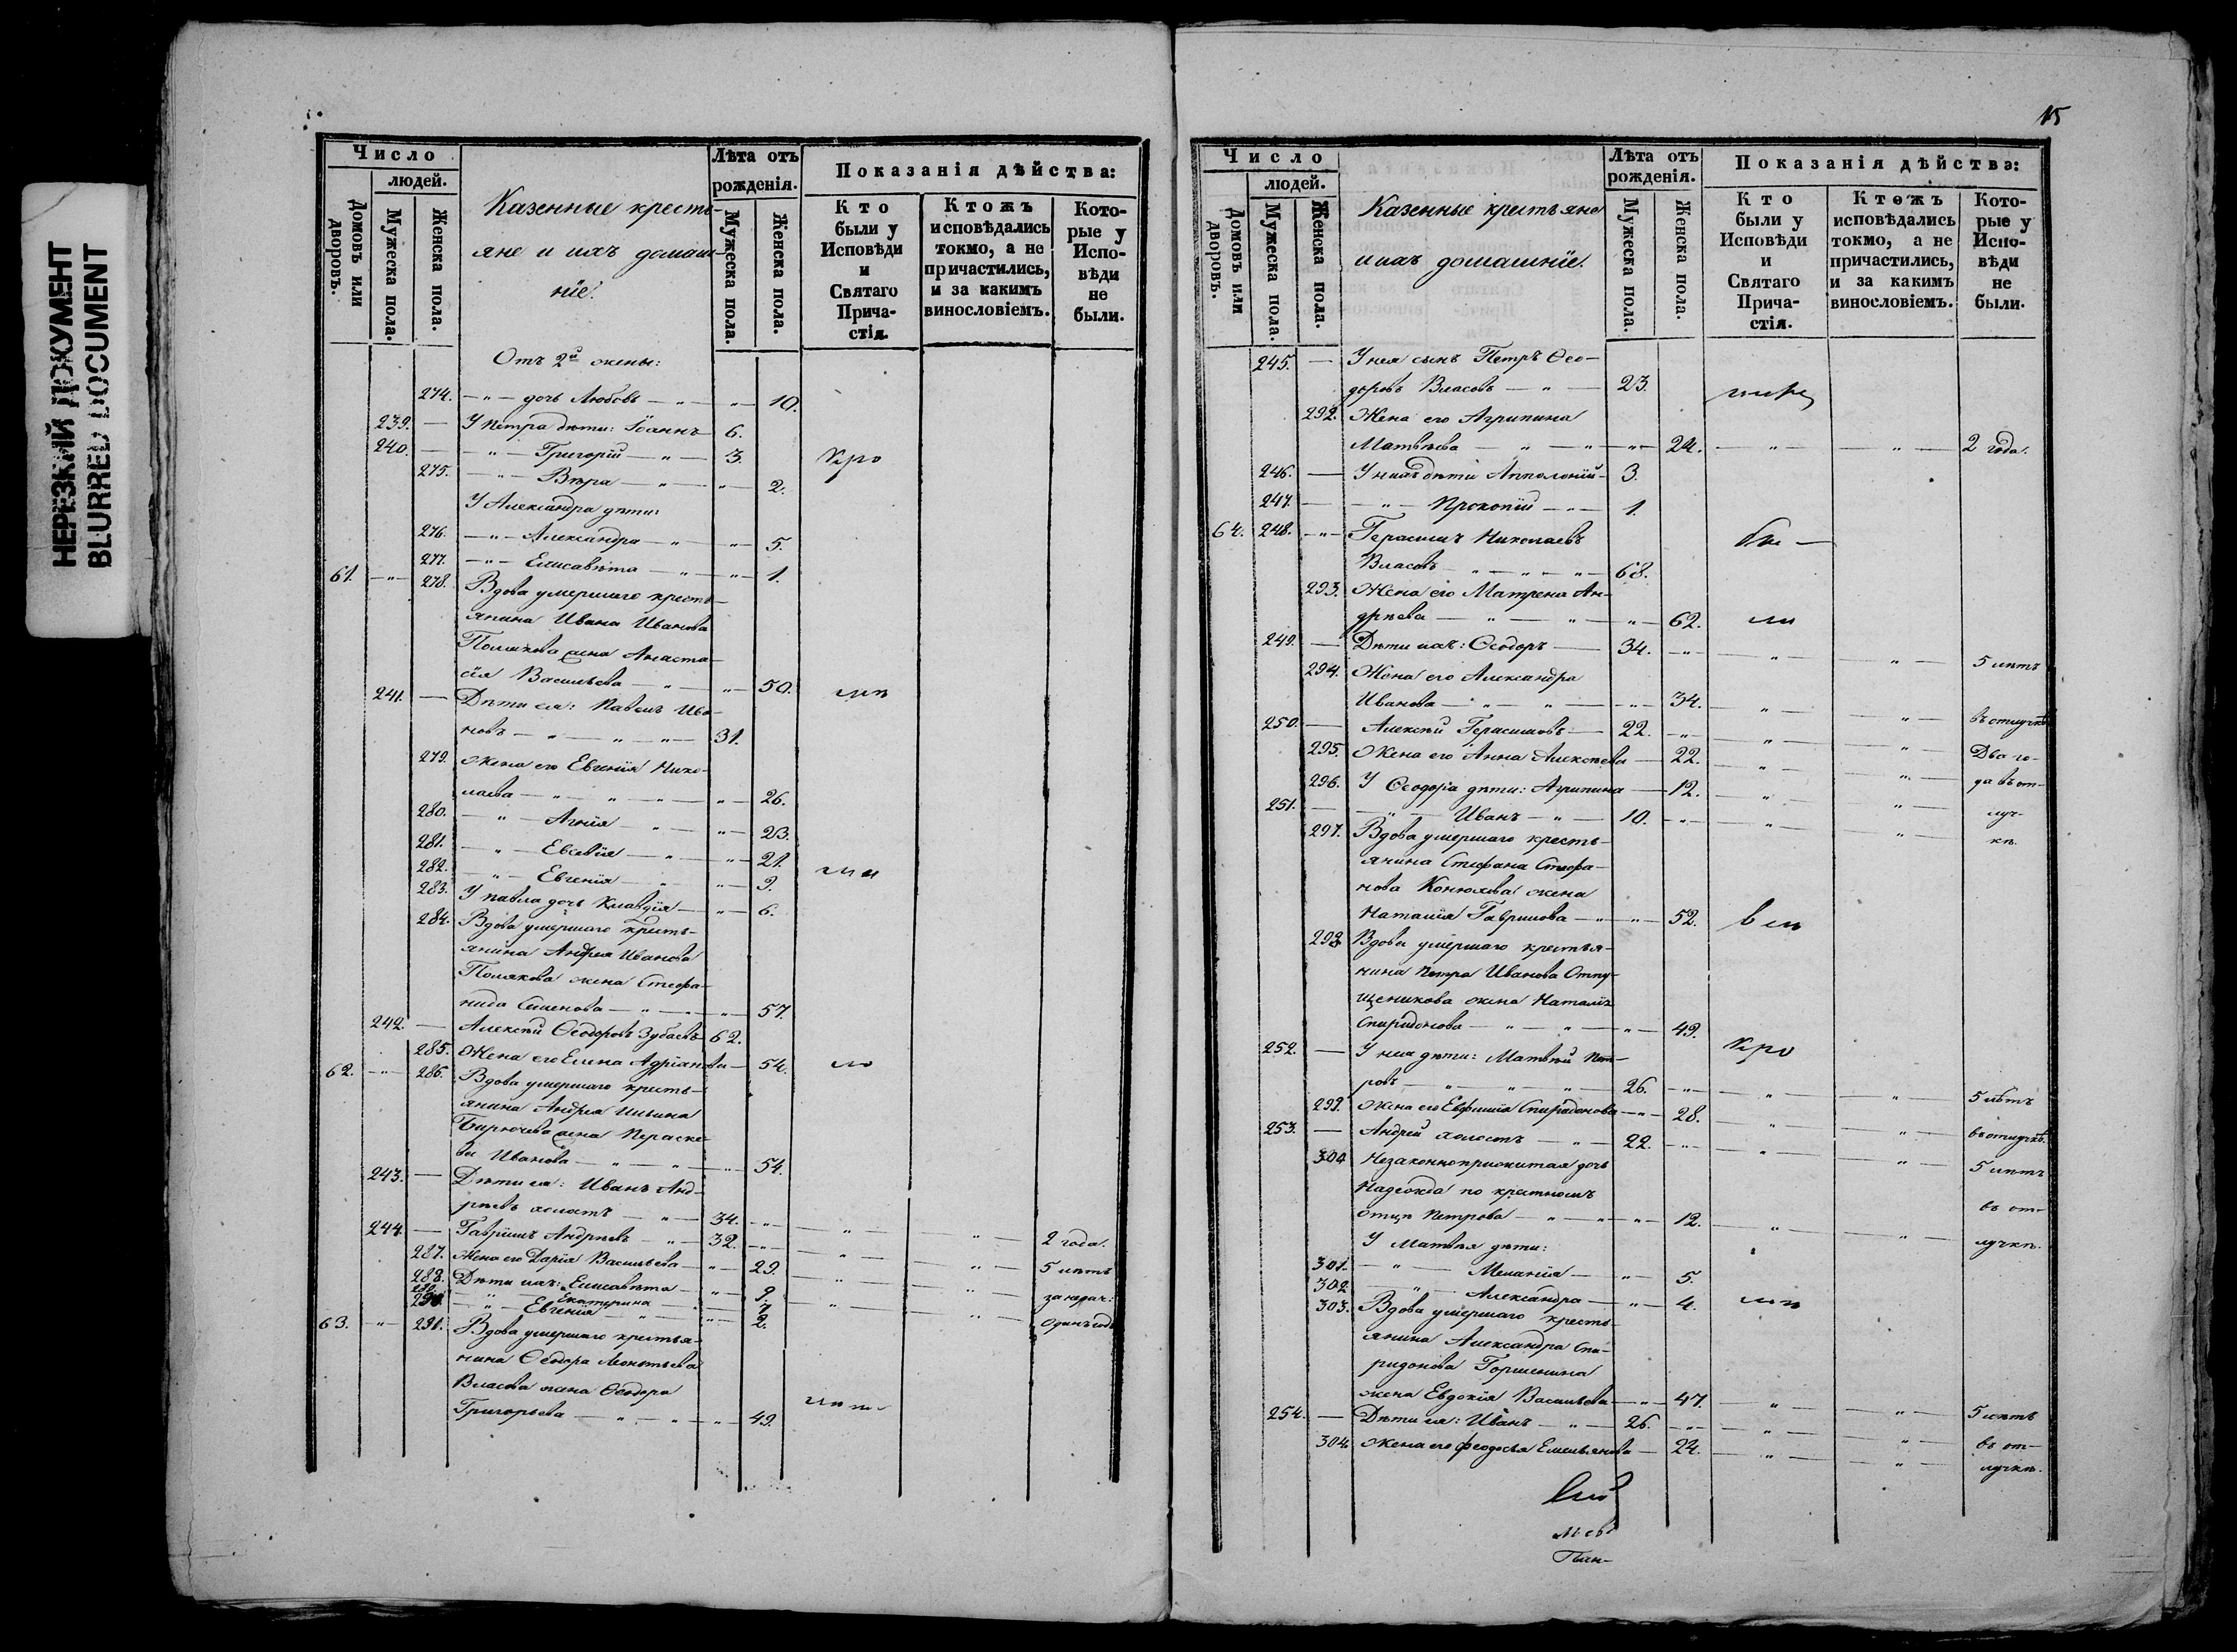 НЕРЕЗКИЙ ДОКУМЕНТ
BLURRED DOCUMENT
Число
людей.
Домовъ или дворовъ.
Мужеска пола.
Женска пола.
Казенные кресть-
яне и ихъ домаш-
ніе.
Лѣта отъ
рожденія.
Мужеска пола.
Женска пола.
Показанія дѣйства:
Кто были у Исповѣди и Святаго Прича-стія.
Ктожъ исповѣдались токмо, а не причастились, и за какимъ винословіемъ.
Кото-рые у Испо-вѣди не были.
Отъ 2й жены:
274. — " — дочь Любовь — " — " — 10.
239. — У Петра дѣти: Іоаннъ 6.
240. — " — Григорій — " — 3.
275. — " — Вѣра — " — " — 2.
У Александра дѣти:
276. — " — Александра — " — " — 5.
277. — " — Елисавета — " — " — 1.
61. — " — 278. Вдова умершаго кресть-
янина Ивана Иванова
Полякова жена Анаста-
сія Васильева — " — " — 50.
241. — Дѣти ея: Павелъ Ива-
новъ — " — " — " — 31.
279. Жена его Евгенія Нико-
лаева — " — " — " — 26.
280. — " — Агнія — " — " — 23.
281. — " — Евсевія — " — " — 21.
282. — " — Евгенія — " — " — 9.
283. У Павла дочь Клавдія — " — 6.
284. Вдова умершаго кресть-
янина Андрея Иванова
Полякова жена Стефа-
нида Семенова — " — " — 57.
242. — Алексѣй Ѳеодоровъ Зубаевъ 62.
285. Жена его Елена Адріанова — 54.
62. — " — 286. Вдова умершаго кресть-
янина Андрея Ильина
Бирючева жена Параске-
ва Иванова — " — " — " — 54.
243. — Дѣти ея: Иванъ Анд-
рѣевъ холостъ — " — 34. — " — " — " — 2 года.
244. — Гавріилъ Андрѣевъ — " — 32. — " — " — " — 5 лѣтъ
287. Жена его Дарія Васильева — " — 29. — " — " —
288. Дѣти ихъ: Елисавета — " — 9. — " — " —
— " — Екатерина — " — 7.
— " — Евгенія — " — 2.
63. — " — 291. Вдова умершаго крестья-
нина Ѳеодора Леонтьева
Власова жена Ѳеодора
Григорьева — " — " — " — 49.
15
Число
людей.
Домовъ или дворовъ.
Мужеска пола.
Женска пола.
Казенные крестьяне
и ихъ домашніе.
Лѣта отъ
рожденія.
Мужеска пола.
Женска пола.
Показанія дѣйства:
Кто были у Исповѣди и Святаго Прича-стія.
Ктожъ исповѣдались токмо, а не причастились, и за какимъ винословіемъ.
Кото-рые у Испо-вѣди не были.
245. — У нея сынъ Петръ Ѳео-
доровъ Власовъ — " — 23.
292. Жена его Агрипина
Матвѣева — " — " — " — 24. — " — " — 2 года.
246. — У нихъ дѣти Апполоній — 3.
247. — " — Прокопій — " — 1.
64. 248. — " — Герасимъ Николаевъ
Власовъ — " — " — " — 68.
293. Жена его Матрена Ан-
дрѣева — " — " — " — 62.
249. — Дѣти ихъ: Ѳеодоръ — 34. — " — " — " — 5 лѣтъ
294. Жена его Александра
Иванова — " — " — " — 34. — " — " — въ отлучкѣ
250. — Алексѣй Герасимовъ — 22. — " — " — " — Два го-
295. Жена его Анна Алексѣева — 22. — " — " — да въ от-
296. У Ѳеодора дѣти: Агрипина — 12. — " — " — луч-
251. — " — Иванъ — " — 10. — " — " — " — кѣ.
297. Вдова умершаго кресть-
янина Стефана Стефа-
нова Конюхова жена
Наталія Гаврилова — " — " — 52.
298. Вдова умершаго крестья-
нина Петра Иванова Отпу-
щеникова жена Наталія
Спиридонова — " — " — " — 49.
252. — У нея дѣти: Матвѣй Пет-
ровъ — " — " — " — 26. — " — " — " — 5 лѣтъ
299. Жена его Евфимія Спиридонова — " — 28. — " — " — въ отлучкѣ.
253. — Андрей холостъ — " — 22. — " — " — " — 5 лѣтъ
300. Незаконноприжитая дочь
Надежда по крестномъ въ от-
отцѣ Петрова — " — " — " — 12. — " — " — лучкѣ.
У Матвѣя дѣти:
301. — " — Меланія — " — 5.
302. — " — Александра — " — 4.
303. Вдова умершаго кресть-
янина Александра Спи-
ридонова Горшенина
жена Евдокія Васильева — " — 47. — " — " — 5 лѣтъ
254. — Дѣти ея: Иванъ — " — 26. — " — " — " — въ от-
304. Жена его Феодосья Емельянова — 24. — " — " — лучкѣ.